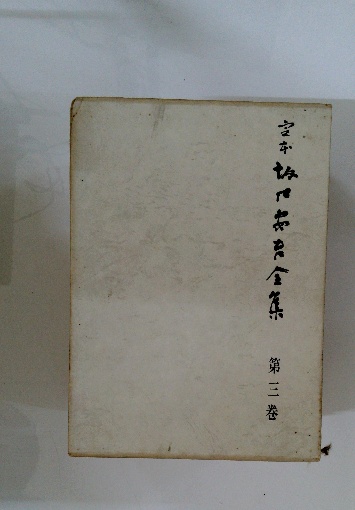 定本 坂口安吾全集 第三巻